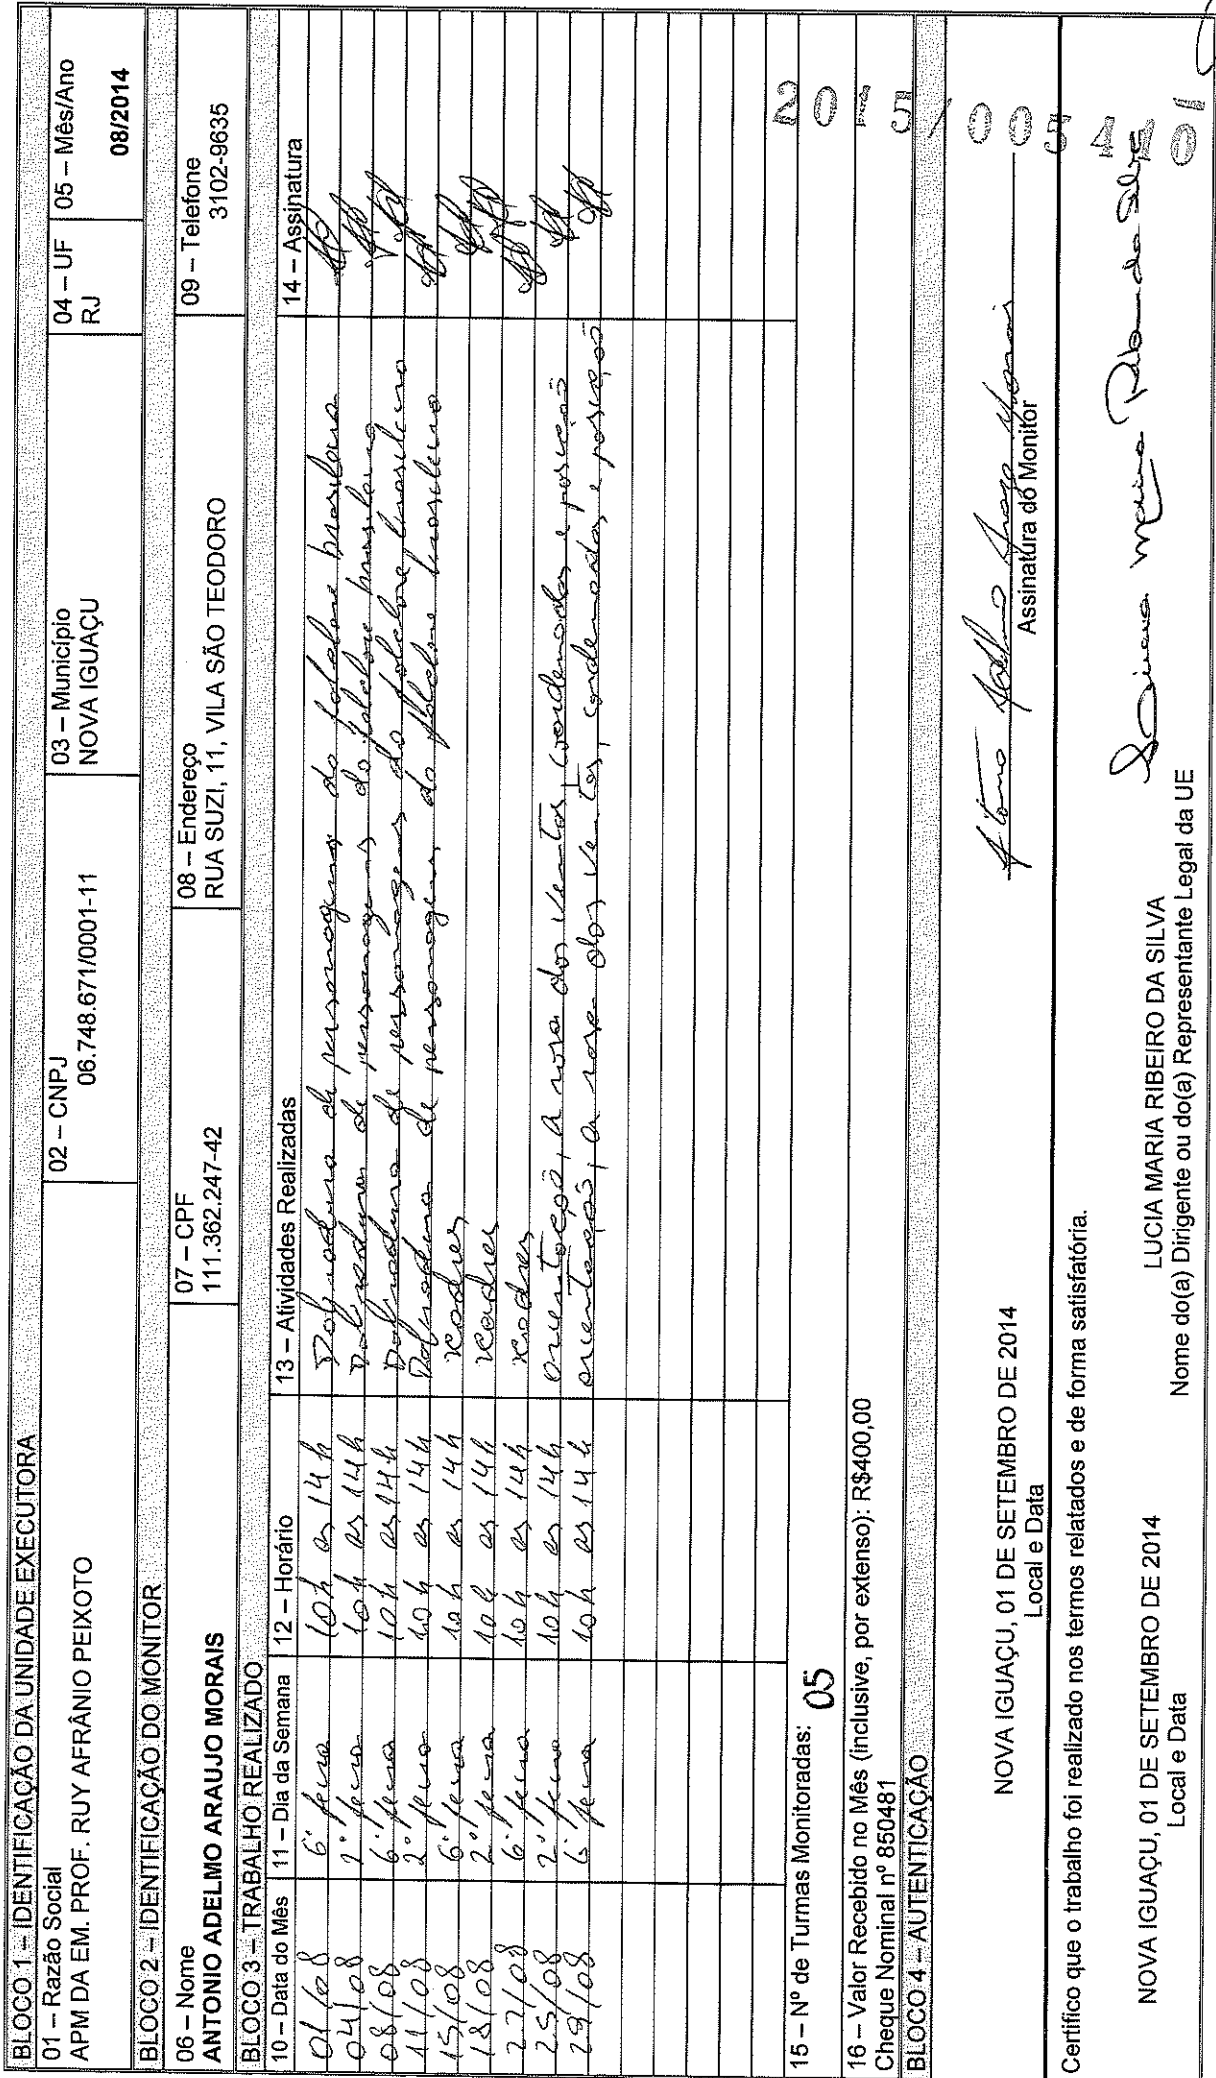 BLOCO 1 – IDENTIFICAÇÃO DA UNIDADE EXECUTORA
01 – Razão Social
APM DA EM. PROF. RUY AFRÂNIO PEIXOTO
02 – CNPJ
06.748.671/0001-11
03 – Município
NOVA IGUAÇU
04 – UF
RJ
05 – Mês/Ano
08/2014
BLOCO 2 – IDENTIFICAÇÃO DO MONITOR
06 – Nome
ANTONIO ADELMO ARAUJO MORAIS
07 – CPF
111.362.247-42
08 – Endereço
RUA SUZI, 11, VILA SÃO TEODORO
09 – Telefone
3102-9635
BLOCO 3 – TRABALHO REALIZADO
10 – Data do Mês 11 – Dia da Semana 12 – Horário 13 – Atividades Realizadas 14 – Assinatura
01/08 6ª feira 10h as 14h de personagens do folclore brasileiro
04/08 2ª feira 10h as 14h de personagens do folclore brasileiro
08/08 6ª feira 10h as 14h de personagens do folclore brasileiro
11/08 2ª feira 10h as 14h de personagens do folclore brasileiro
15/08 6ª feira 10h as 14h xadrez
18/08 2ª feira 10h as 14h xadrez
22/08 6ª feira 10h as 14h xadrez
25/08 2ª feira 10h as 14h orientação, a rosa dos ventos, coordenadas e posição
29/08 6ª feira 10h as 14h orientação, a rosa dos ventos, coordenadas e posição
15 – Nº de Turmas Monitoradas: 05
16 – Valor Recebido no Mês (inclusive, por extenso): R$400,00
Cheque Nominal nº 850481
2015/005410
BLOCO 4 – AUTENTICAÇÃO
NOVA IGUAÇU, 01 DE SETEMBRO DE 2014
Local e Data
Antonio Adelmo Araujo Morais
Assinatura do Monitor
Certifico que o trabalho foi realizado nos termos relatados e de forma satisfatória.
NOVA IGUAÇU, 01 DE SETEMBRO DE 2014
Local e Data
LUCIA MARIA RIBEIRO DA SILVA
Nome do(a) Dirigente ou do(a) Representante Legal da UE